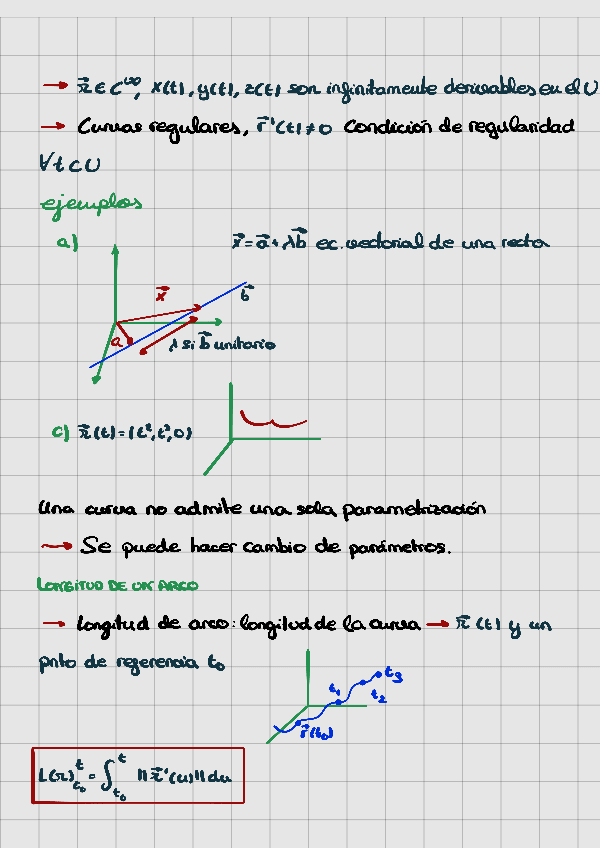 → r⃗ ∈ C^∞, x(t), y(t), z(t) son infinitamente derivables en el U
→ Curvas regulares, r⃗'(t) ≠ 0 Condición de regularidad
∀ t ⊂ U
ejemplos
a) x⃗ = a⃗ + λb⃗ ec. vectorial de una recta
x⃗
b⃗
a
λ si b⃗ unitario
c) r⃗(t) = (t², t³, 0)
Una curva no admite una sola parametrización
→ Se puede hacer cambio de parámetros.
LONGITUD DE UN ARCO
→ longitud de arco: longitud de la curva → r⃗(t) y un
pnto de regerencia t₀
t₃
t₁
t₂
r⃗(t₀)
L(r)_{t₀}^{t} = ∫_{t₀}^{t} ||r⃗'(u)|| du